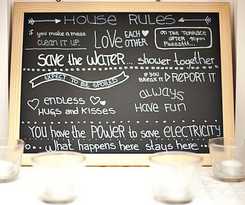 House Rules
if you make a mess
clean it up.
Love each other
on the terrace
after 11pm
Pssssttt...
Save the water... shower together
expect to be spoiled
if you break it
REPORT IT
endless
hugs and kisses
always
have fun
You have the power to save electricity
what happens here stays here...